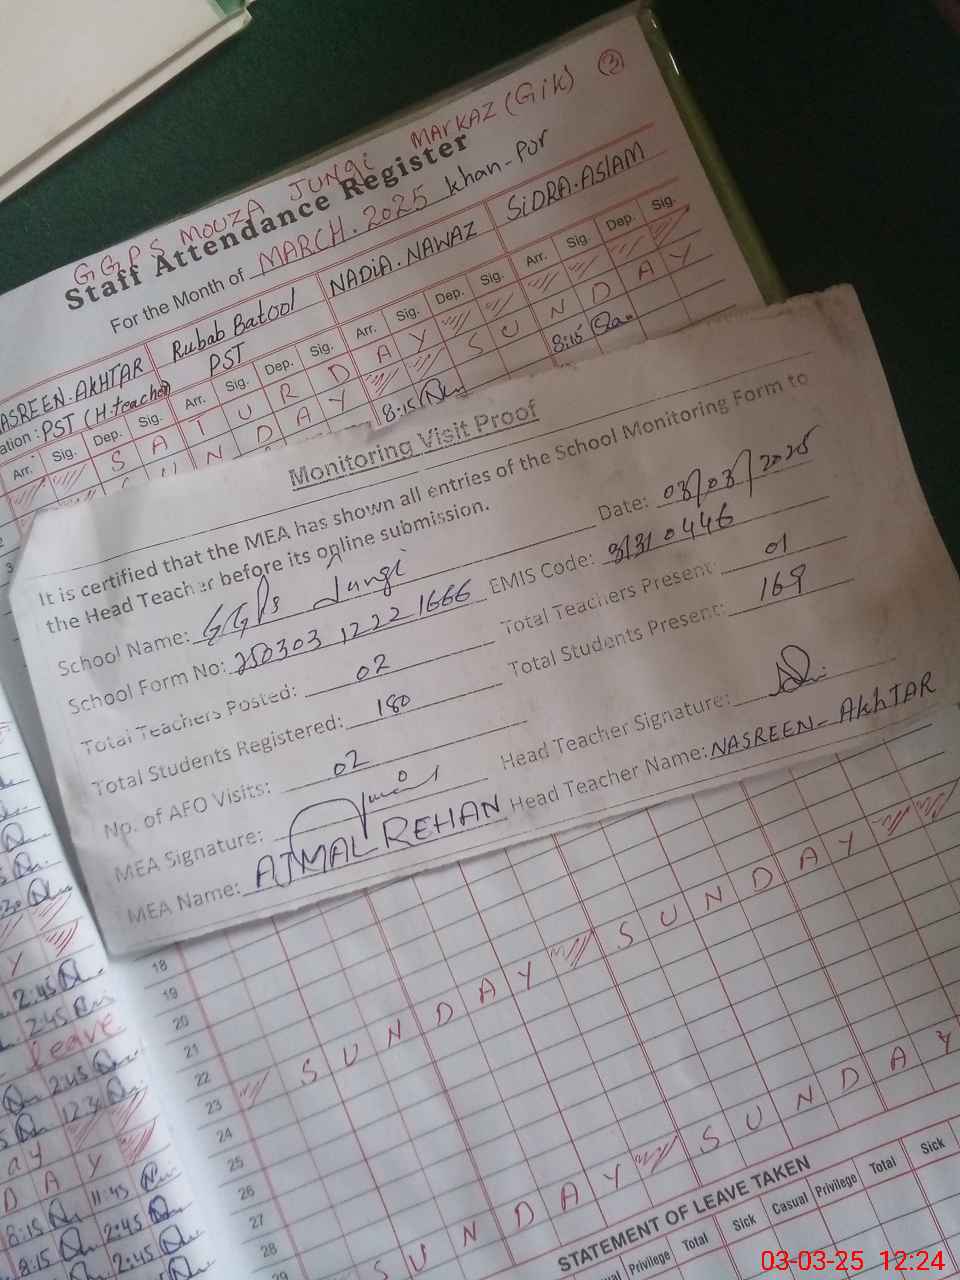 GGPS MOUZA JUNGi MARKAZ (GiK) 3
Staff Attendance Register
For the Month of MARCH.2025 khan-Pur
ASREEN-AKHTAR Rubab Batool NADiA.NAWAZ SiDRA.ASlAM
ation: PST (H.teacher) PST
Arr. Sig. Dep. Sig. Arr. Sig. Dep. Sig. Arr. Sig. Dep. Sig. Arr. Sig. Dep. Sig.
S A T U R D A Y S U N D A Y
U N D A Y 8:15 8:15
2
3
Monitoring Visit Proof
It is certified that the MEA has shown all entries of the School Monitoring Form to
the Head Teacher before its online submission.
Date: 03/03/2025
School Name: GGPS Jungi
EMIS Code: 31310446
School Form No: 250303 1222 1666
Total Teachers Present: 01
Total Teachers Posted: 02
Total Students Present: 169
Total Students Registered: 180
No. of AFO Visits: 02
Head Teacher Signature:
MEA Signature:
Head Teacher Name: NASREEN-AKhTAR
MEA Name: AJMAL REHAN
18
19
20
21
22
23 S U N D A Y S U N D A Y
24
25
26
27
28
29
S U N D A Y S U N D A Y
STATEMENT OF LEAVE TAKEN
Privilege Total Sick Casual Privilege Total Sick
Y
2:45
2:45
leave
2:45
12:30
a y
D A Y
11:45
8:15 2:45
8:15 2:45
03-03-25 12:24